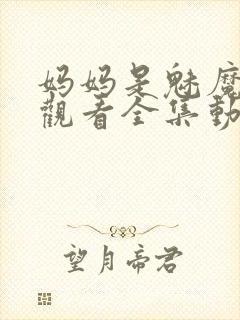 妈妈是魅魔
觀看全集動
望月帝君